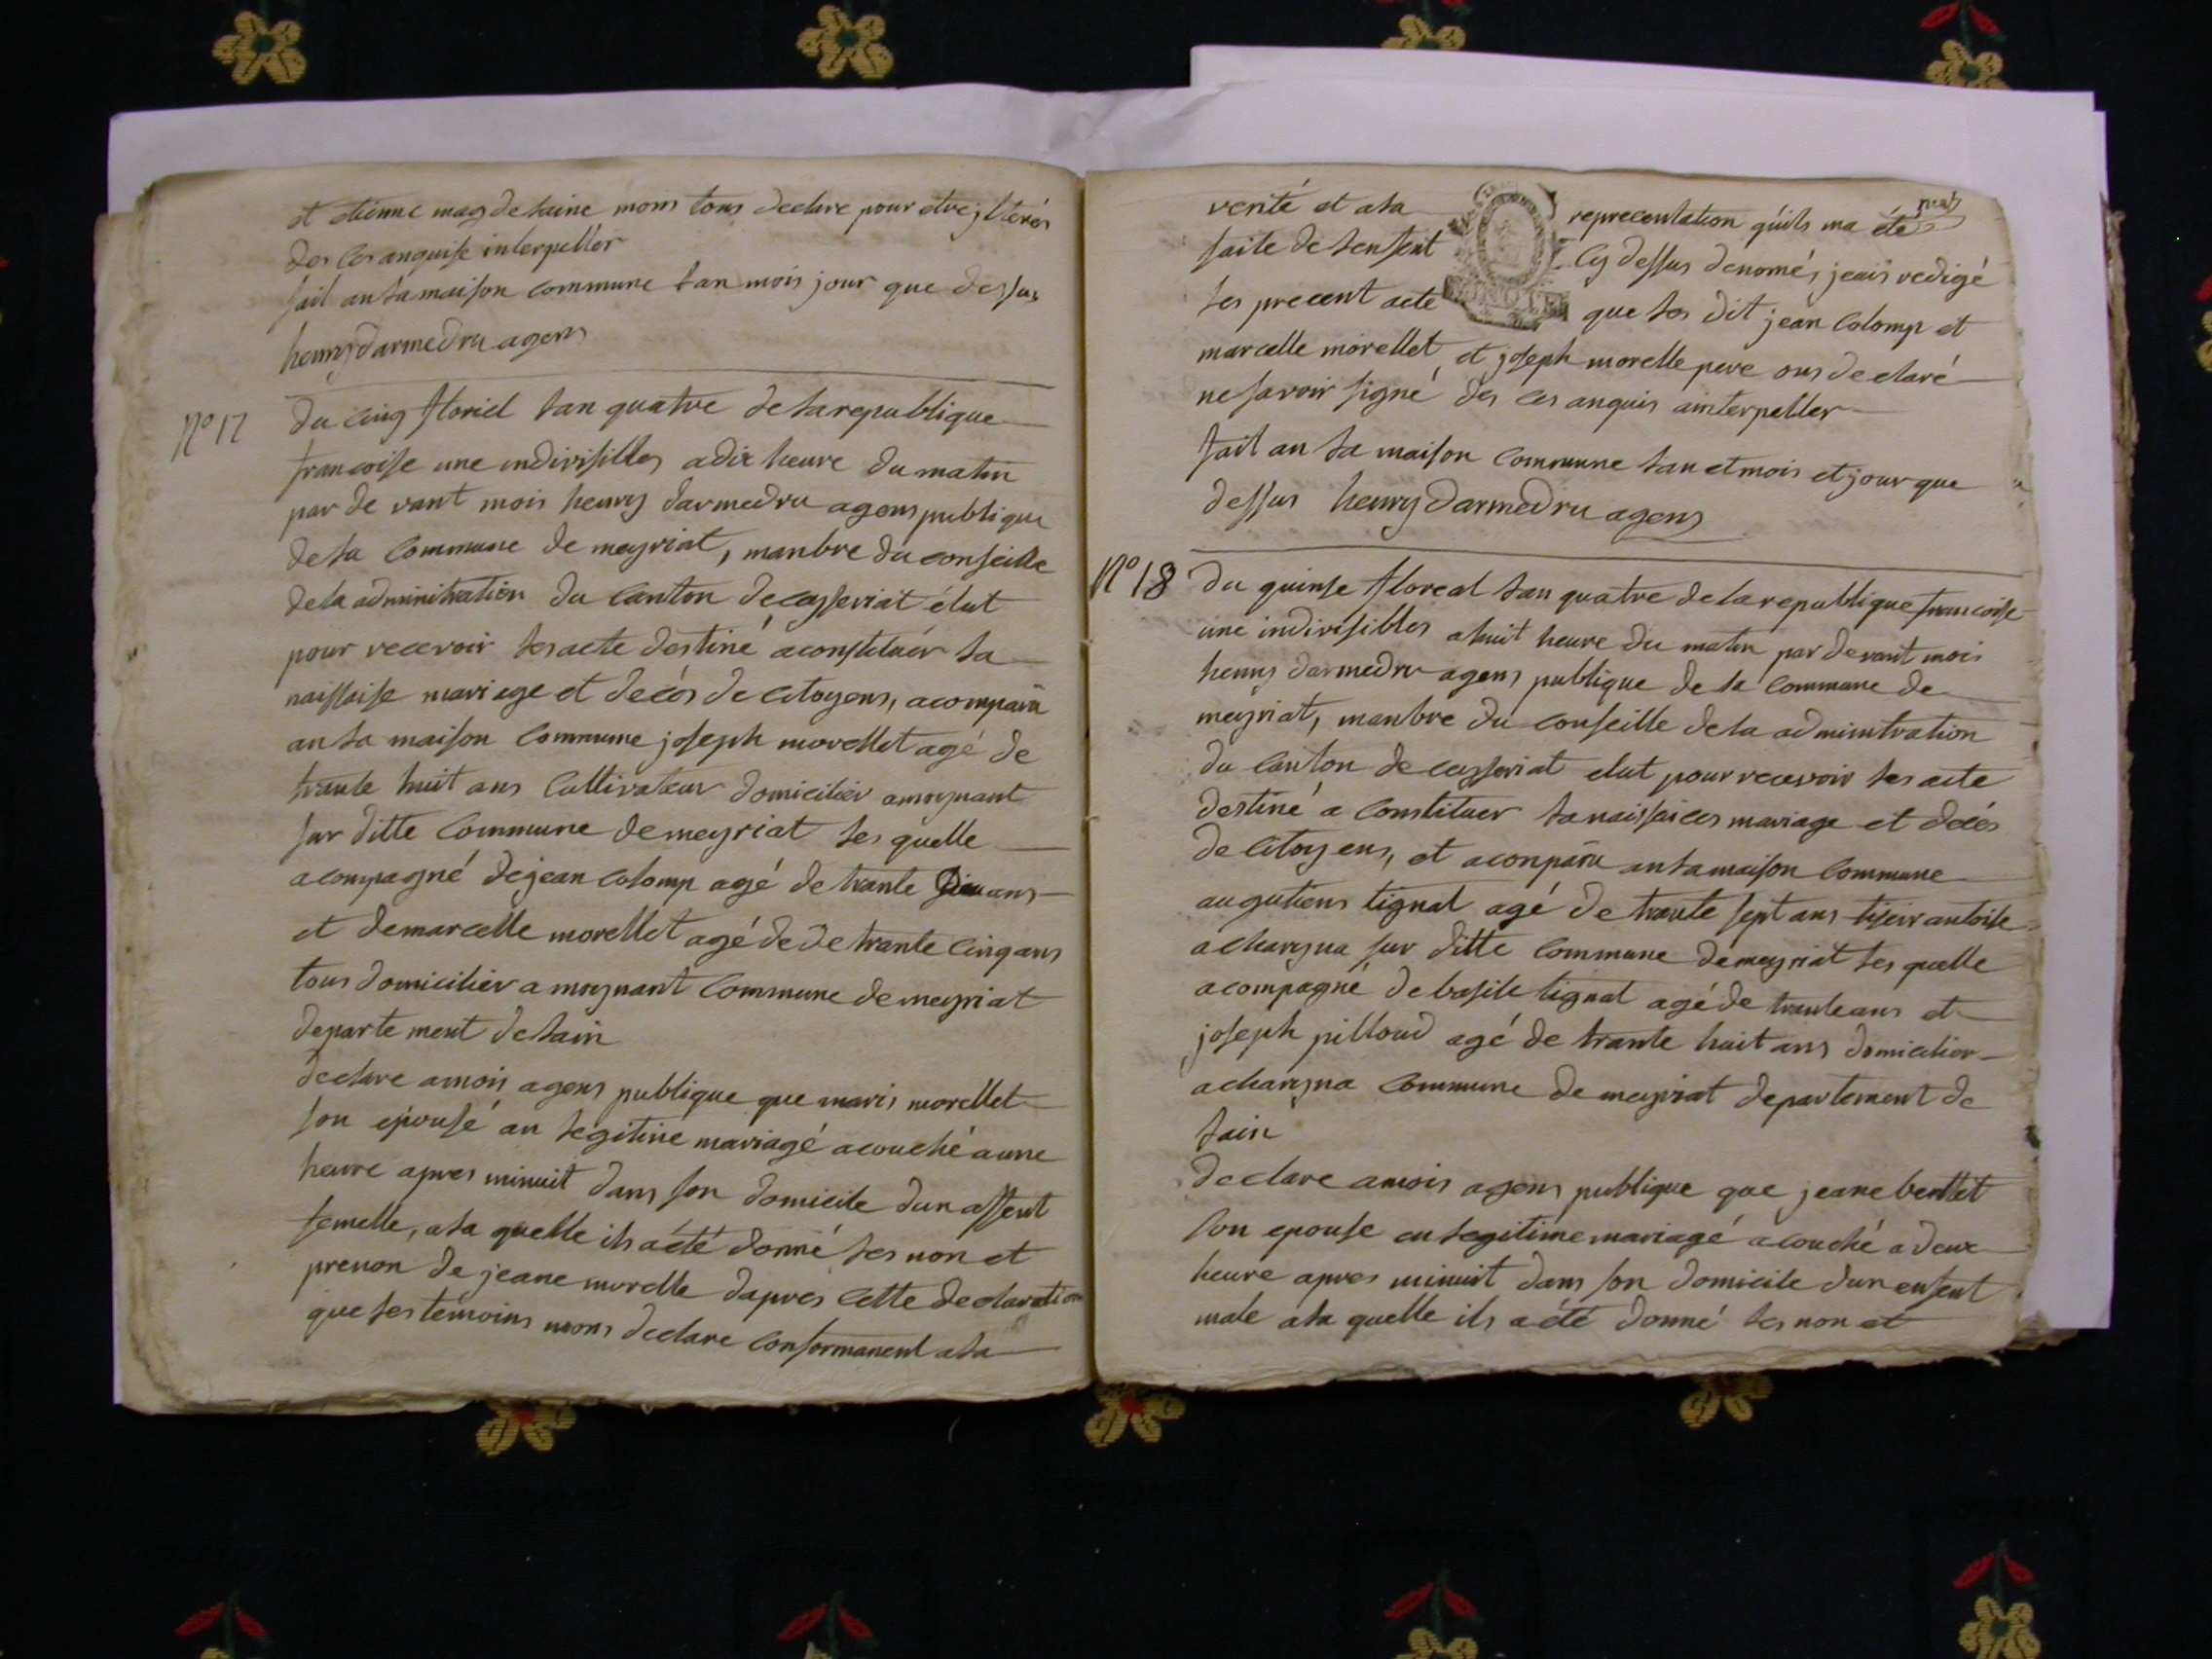 et etienne magdelaine mons tous declare pour etre jlterés
des les anquise interpeller
fait an la maison commune lan mois jour que dessus
henry darmedru agens
N° 17
du cinq floriel lan quatre de la republique
francoise une indivisilles a dix heure du matin
par de vant mois henry darmedru agens publique
de la commune de meyriat, manbre du conseille
de la adminitration du canton de ceyseriat élut
pour recevoir les acte destiné a constituér la
naissaise mariage et decés de citoyens, a comparu
an la maison commune joseph morellet agé de
trante huit ans cultivateur domicilier a moynant
sur ditte commune de meyriat les quelle
acompagné de jean colomp agé de trante ans
et de marcelle morellet agé de de trante cinq ans
tous domicilier a moynant commune de meyriat
departe ment de lain
declare a mois agens publique que maris morellet
son epousé an legitine mariagé a couché a une
heure apres minuit dans son domicile dun affent
femelle, a la quelle ils a été donné les non et
prenon de jeane morelle dapres cette declaration
que les temoins mons declare conformanent a la
verité et a la reprecentation quils ma été
faite de lenfent cy dessus denomés jeais redigé
les precent acte que les dit jean colomp et
marcelle morellet et joseph morelle pere ons declaré
ne savoir signé des les anquis a interpeller
fait an la maison commune lan et mois et jour que
dessus henry darmedru agens
N° 18
du quinse floreal lan quatre de la republique francoise
une indivisibles a huit heure du matin par devant mois
henry darmedru agens publique de la commune de
meyriat, manbre du conseille de la adminitration
du canton de ceyseriat elut pour recevoir les acte
destiné a constituer la naissaices mariage et décés
de citoyens, et a conparu an la maison commune
augutiens tignat agé de trante sept ans
a charyna sur ditte commune de meyriat les quelle
acompagné de basile tignat agé de trante ans et
joseph pilloud agé de trante huit ans domicilier
a charyna commune de meyriat departement de
lain
declare a mois agens publique que jeane berthet
son epouse en legitime mariagé a couché a deux
heure apres minuit dans son domicile dun enfent
male a la quelle ils a été donné les non et